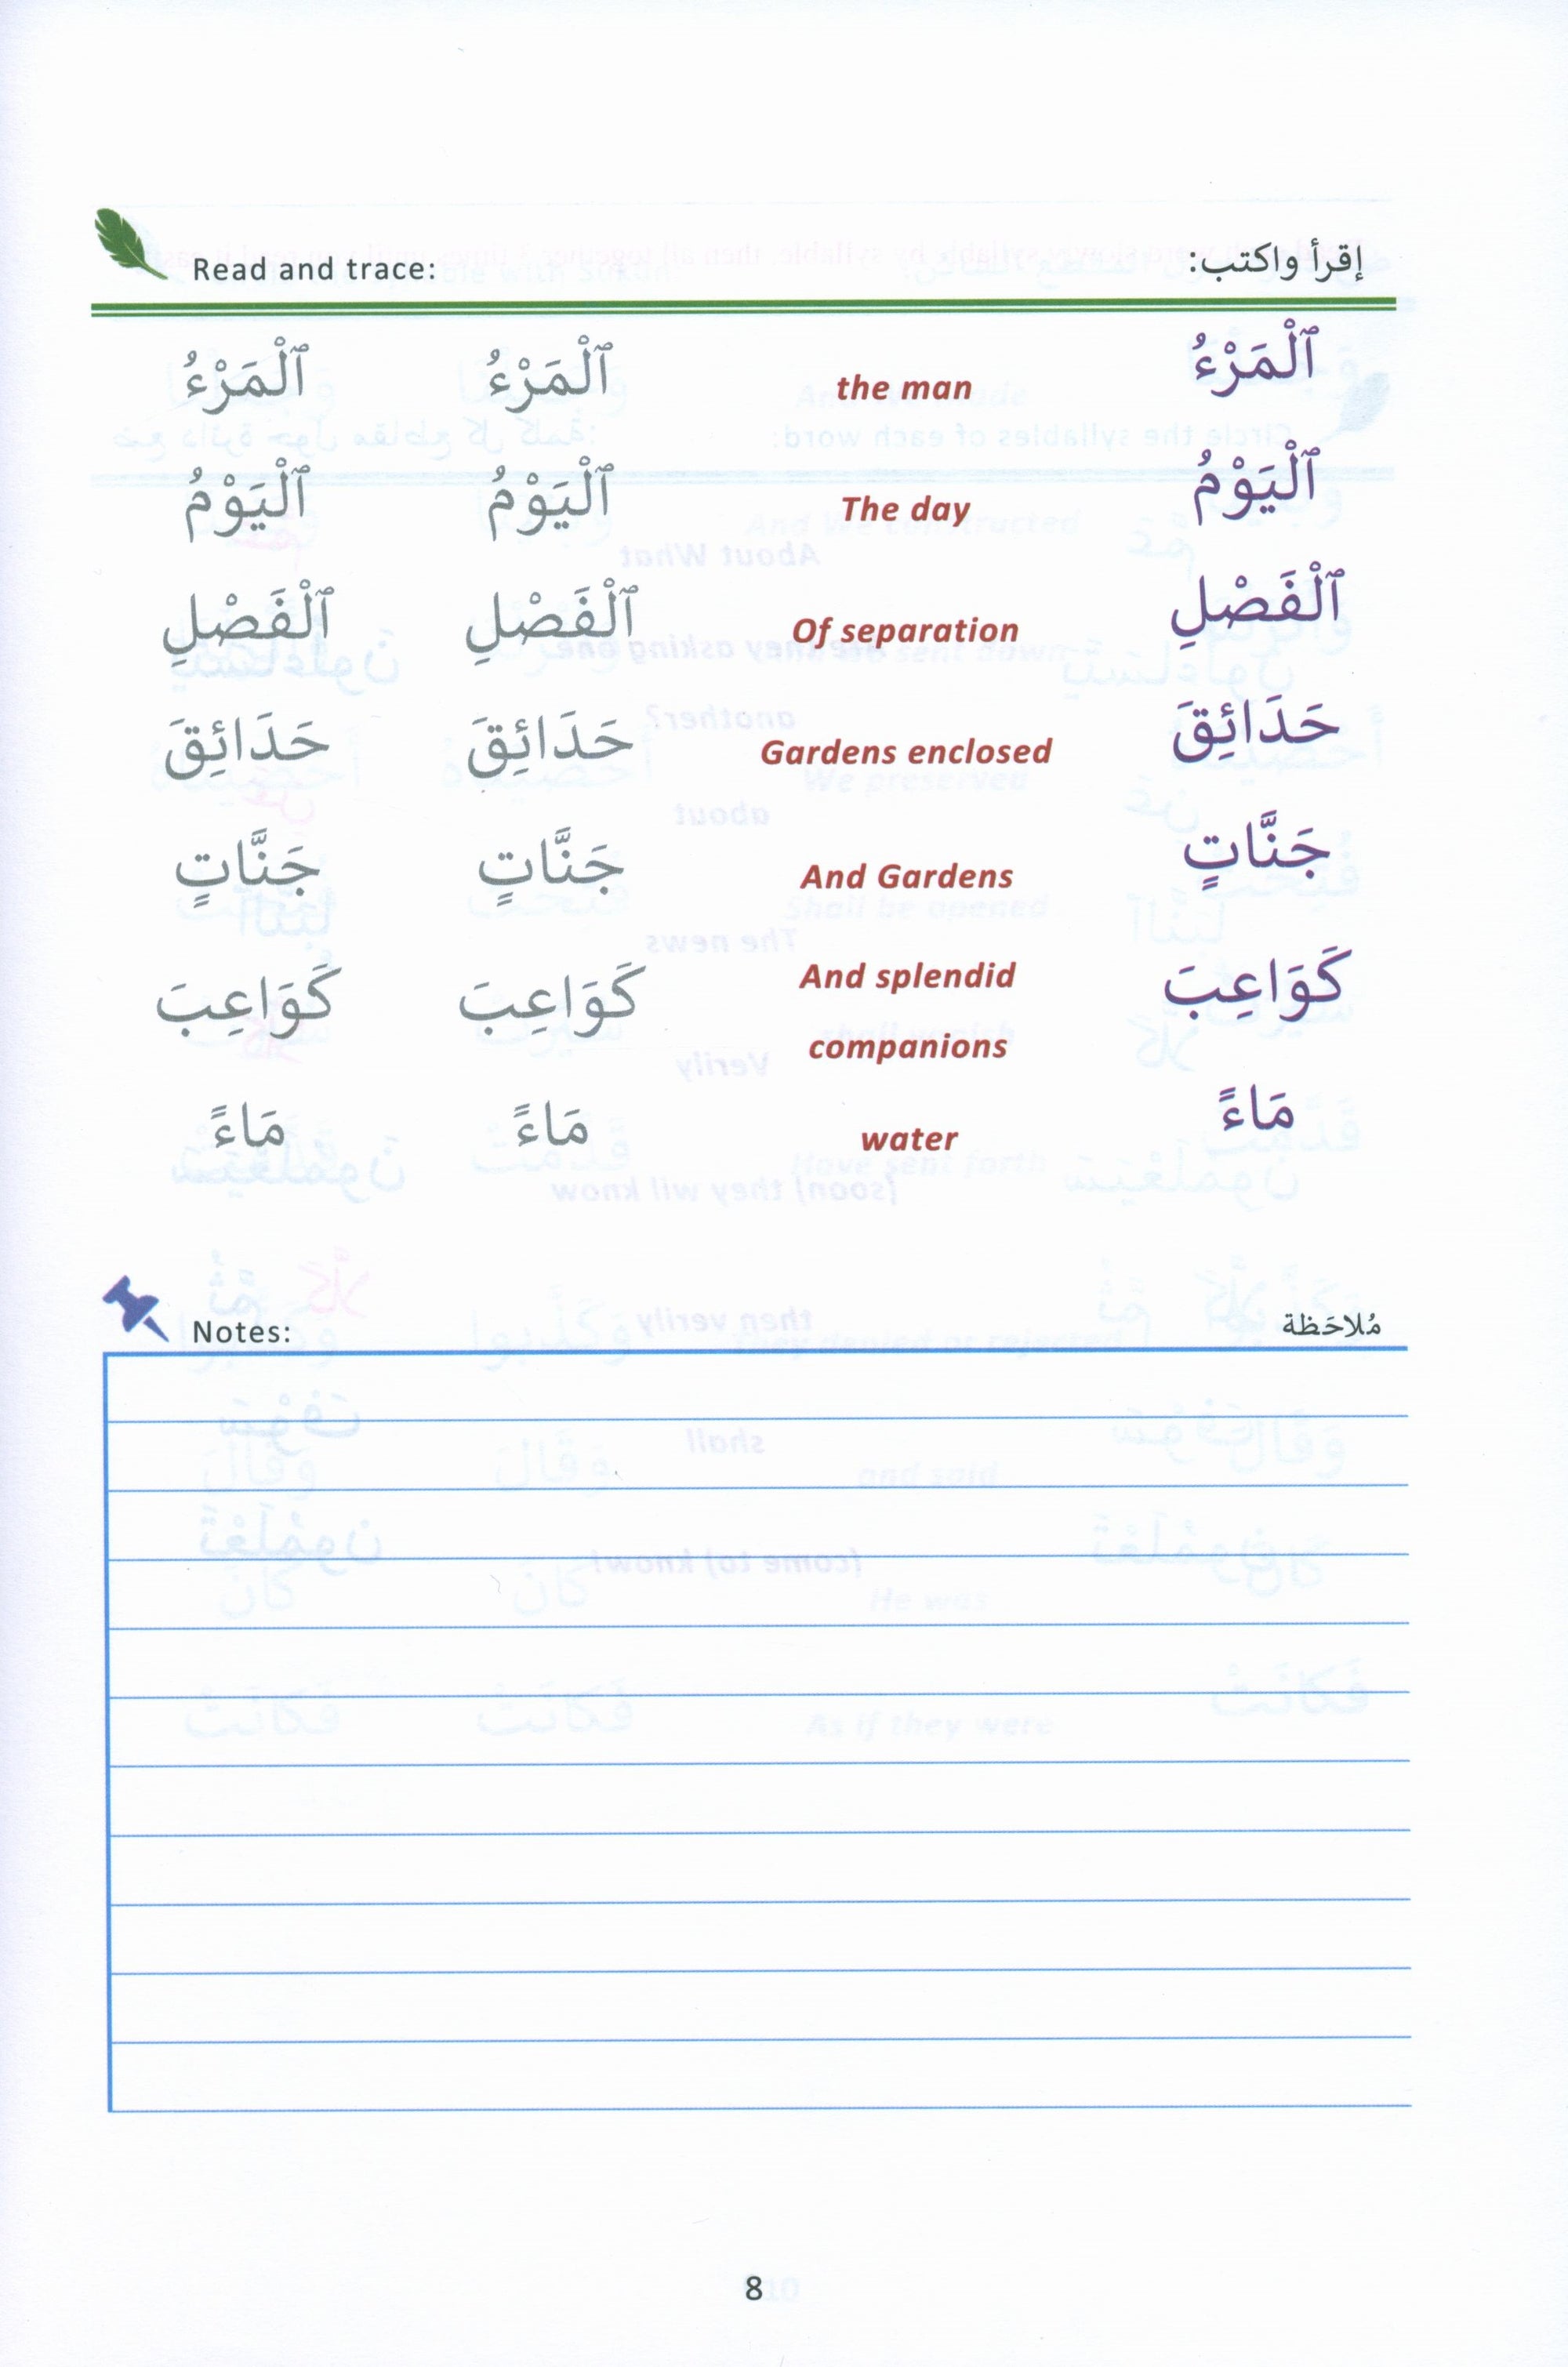 Read and trace: إقرأ واكتب:
ٱلْمَرْءُ the man ٱلْمَرْءُ ٱلْمَرْءُ
ٱلْيَوْمُ The day ٱلْيَوْمُ ٱلْيَوْمُ
ٱلْفَصْلِ Of separation ٱلْفَصْلِ ٱلْفَصْلِ
حَدَائِقَ Gardens enclosed حَدَائِقَ حَدَائِقَ
جَنَّاتٍ And Gardens جَنَّاتٍ جَنَّاتٍ
كَوَاعِبَ And splendid كَوَاعِبَ كَوَاعِبَ
companions
مَاءً water مَاءً مَاءً
Notes: مُلاحَظة
8